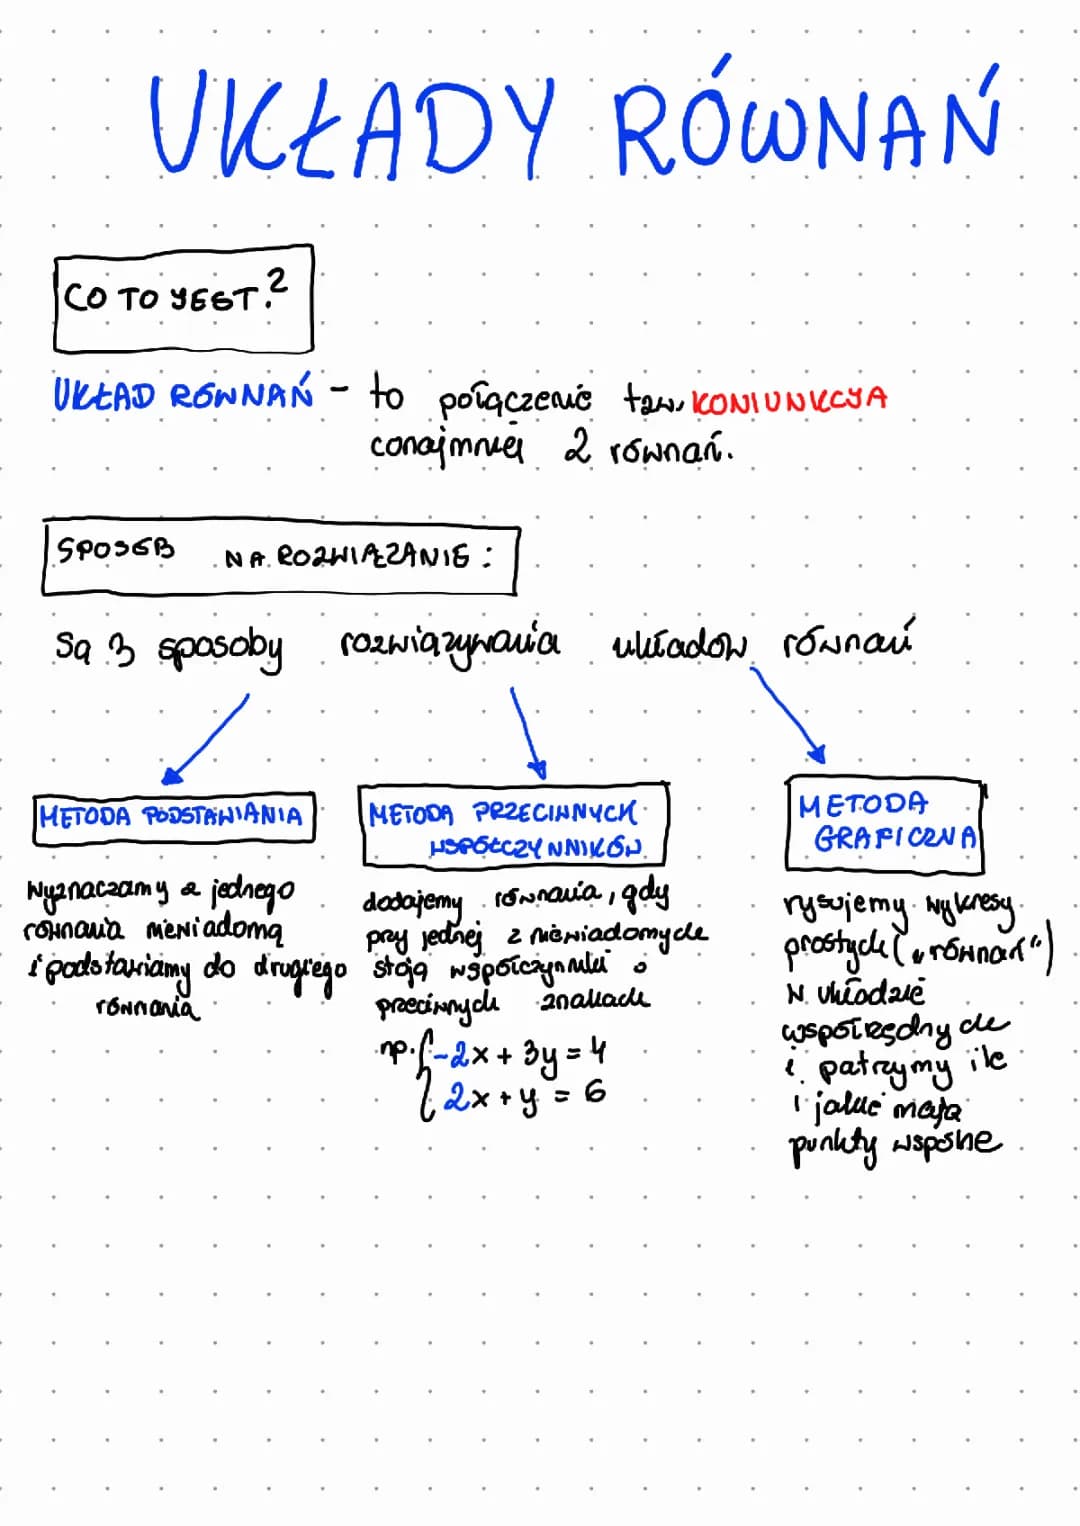 UKŁADY RÓWNAŃ
CO TO JEST?
UKŁAD RÓWNAŃ - to połączenie tzw. KONIUNKCJA
conajmniej 2 równań.
SPOSÓB NA ROZWIĄZANIE:
Są 3 sposoby rozwiązywania układów równań
METODA PODSTAWIANIA
Wyznaczamy z jednego
równania niewiadomą
i podstawiamy do drugiego
równania
METODA PRZECIWNYCH
WSPÓŁCZYNNIKÓW
dodajemy równania, gdy
przy jednej z niewiadomych
stoją współczynniki o
przeciwnych znakach
np. { -2x + 3y = 4
2x + y = 6
METODA
GRAFICZNA
rysujemy wykresy
prostych („równań")
w układzie
współrzędnych
i patrzymy ile
i jakie mają
punkty wspólne